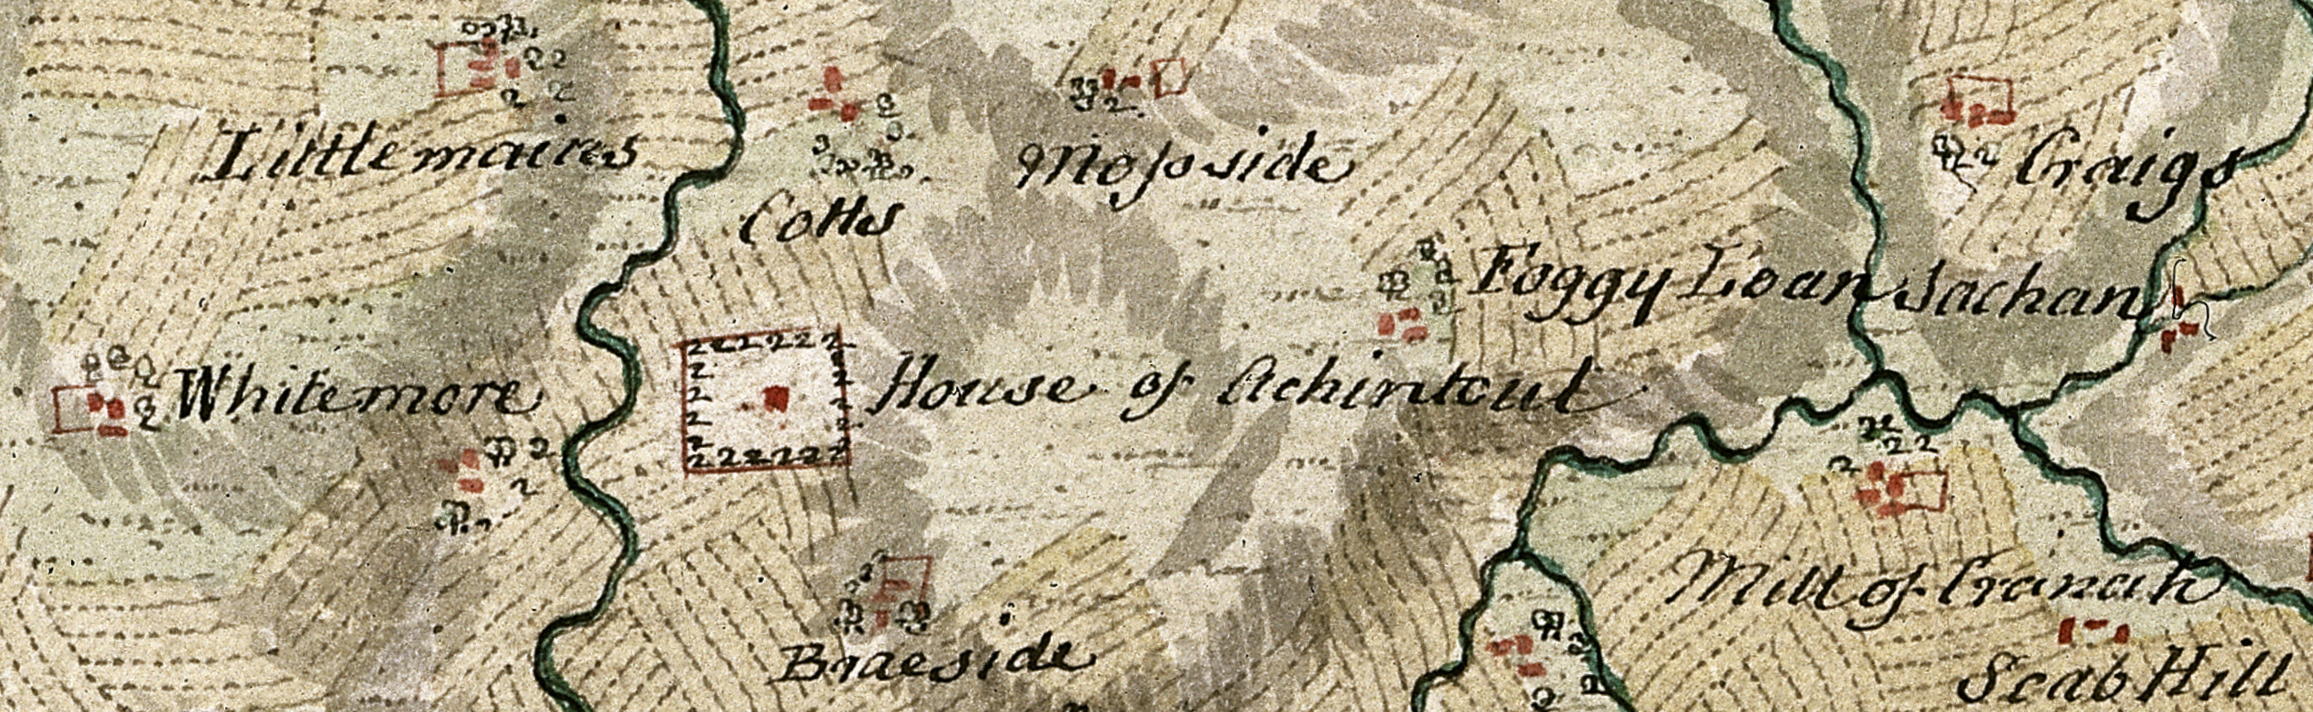 Littlemains
Mosside
Craigs
Cotts
Foggy Loan
Sachan
Whitemore
House of Achintoul
Mill of Cranach
Braeside
Scab Hill